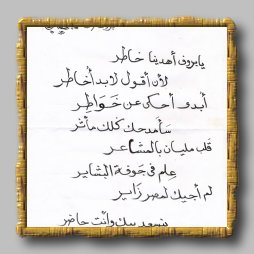 يابروف أهدينا خاطر
لأن أقول لابد أخاطر
أبدو أحكي عن خَوَاطِر
سأمدحك كلك مآثر
قلب مليان بالمشاعر
علم في جوفة البشاير
لم أجيك لمصر زاير
بنسعد بيك وأنت حاضر